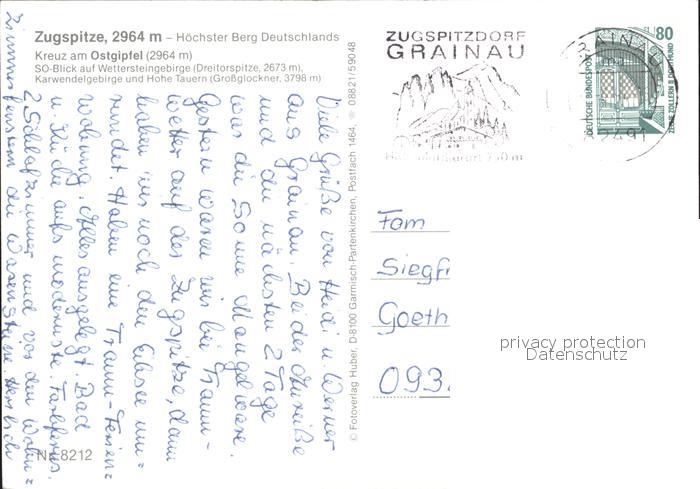 Zugspitze, 2964 m – Höchster Berg Deutschlands
Kreuz am Ostgipfel (2964 m)
SO-Blick auf Wettersteingebirge (Dreitorspitze, 2673 m),
Karwendelgebirge und Hohe Tauern (Großglockner, 3798 m)
Viele Grüße von Heidi u. Werner
aus Grainau. Bei der Anreise
und die nächsten 2 Tage
war die Sonne Mangelware.
Gestern waren wir bei Traum-
wetter auf der Zugspitze, dann
haben wir noch den Eibsee um=
rundet. Haben eine Traum-Ferien=
wohnung. Alles ausgelegt. Bad
u. Küche aufs modernste. Farbferns.
2 Schlafzimmer und von den Wohn=
zimmerfenstern die Herrliche
Nr. 8212
© Fotoverlag Huber, D-8100 Garmisch-Partenkirchen, Postfach 1464, ☏ 08821/59048
ZUGSPITZDORF
GRAINAU
750 m
80
DEUTSCHE BUNDESPOST
ZECHE ZOLLERN II DORTMUND
Fam
Siegfr
Goeth
093
privacy protection
Datenschutz